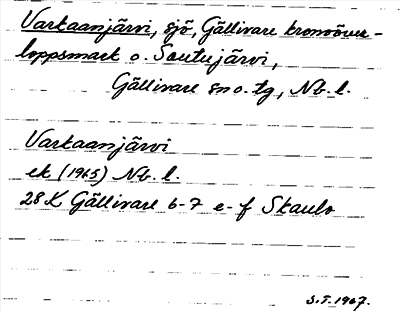 Varkaanjärvi, sjö, Gällivare kronoöver-
loppsmark o. Soutujärvi,
Gällivare sn o. tg, Nb. l.
Varkaanjärvi
ek (1965) Nb. l.
28 K Gällivare 6-7 e-f Skaulo
S.T. 1967.